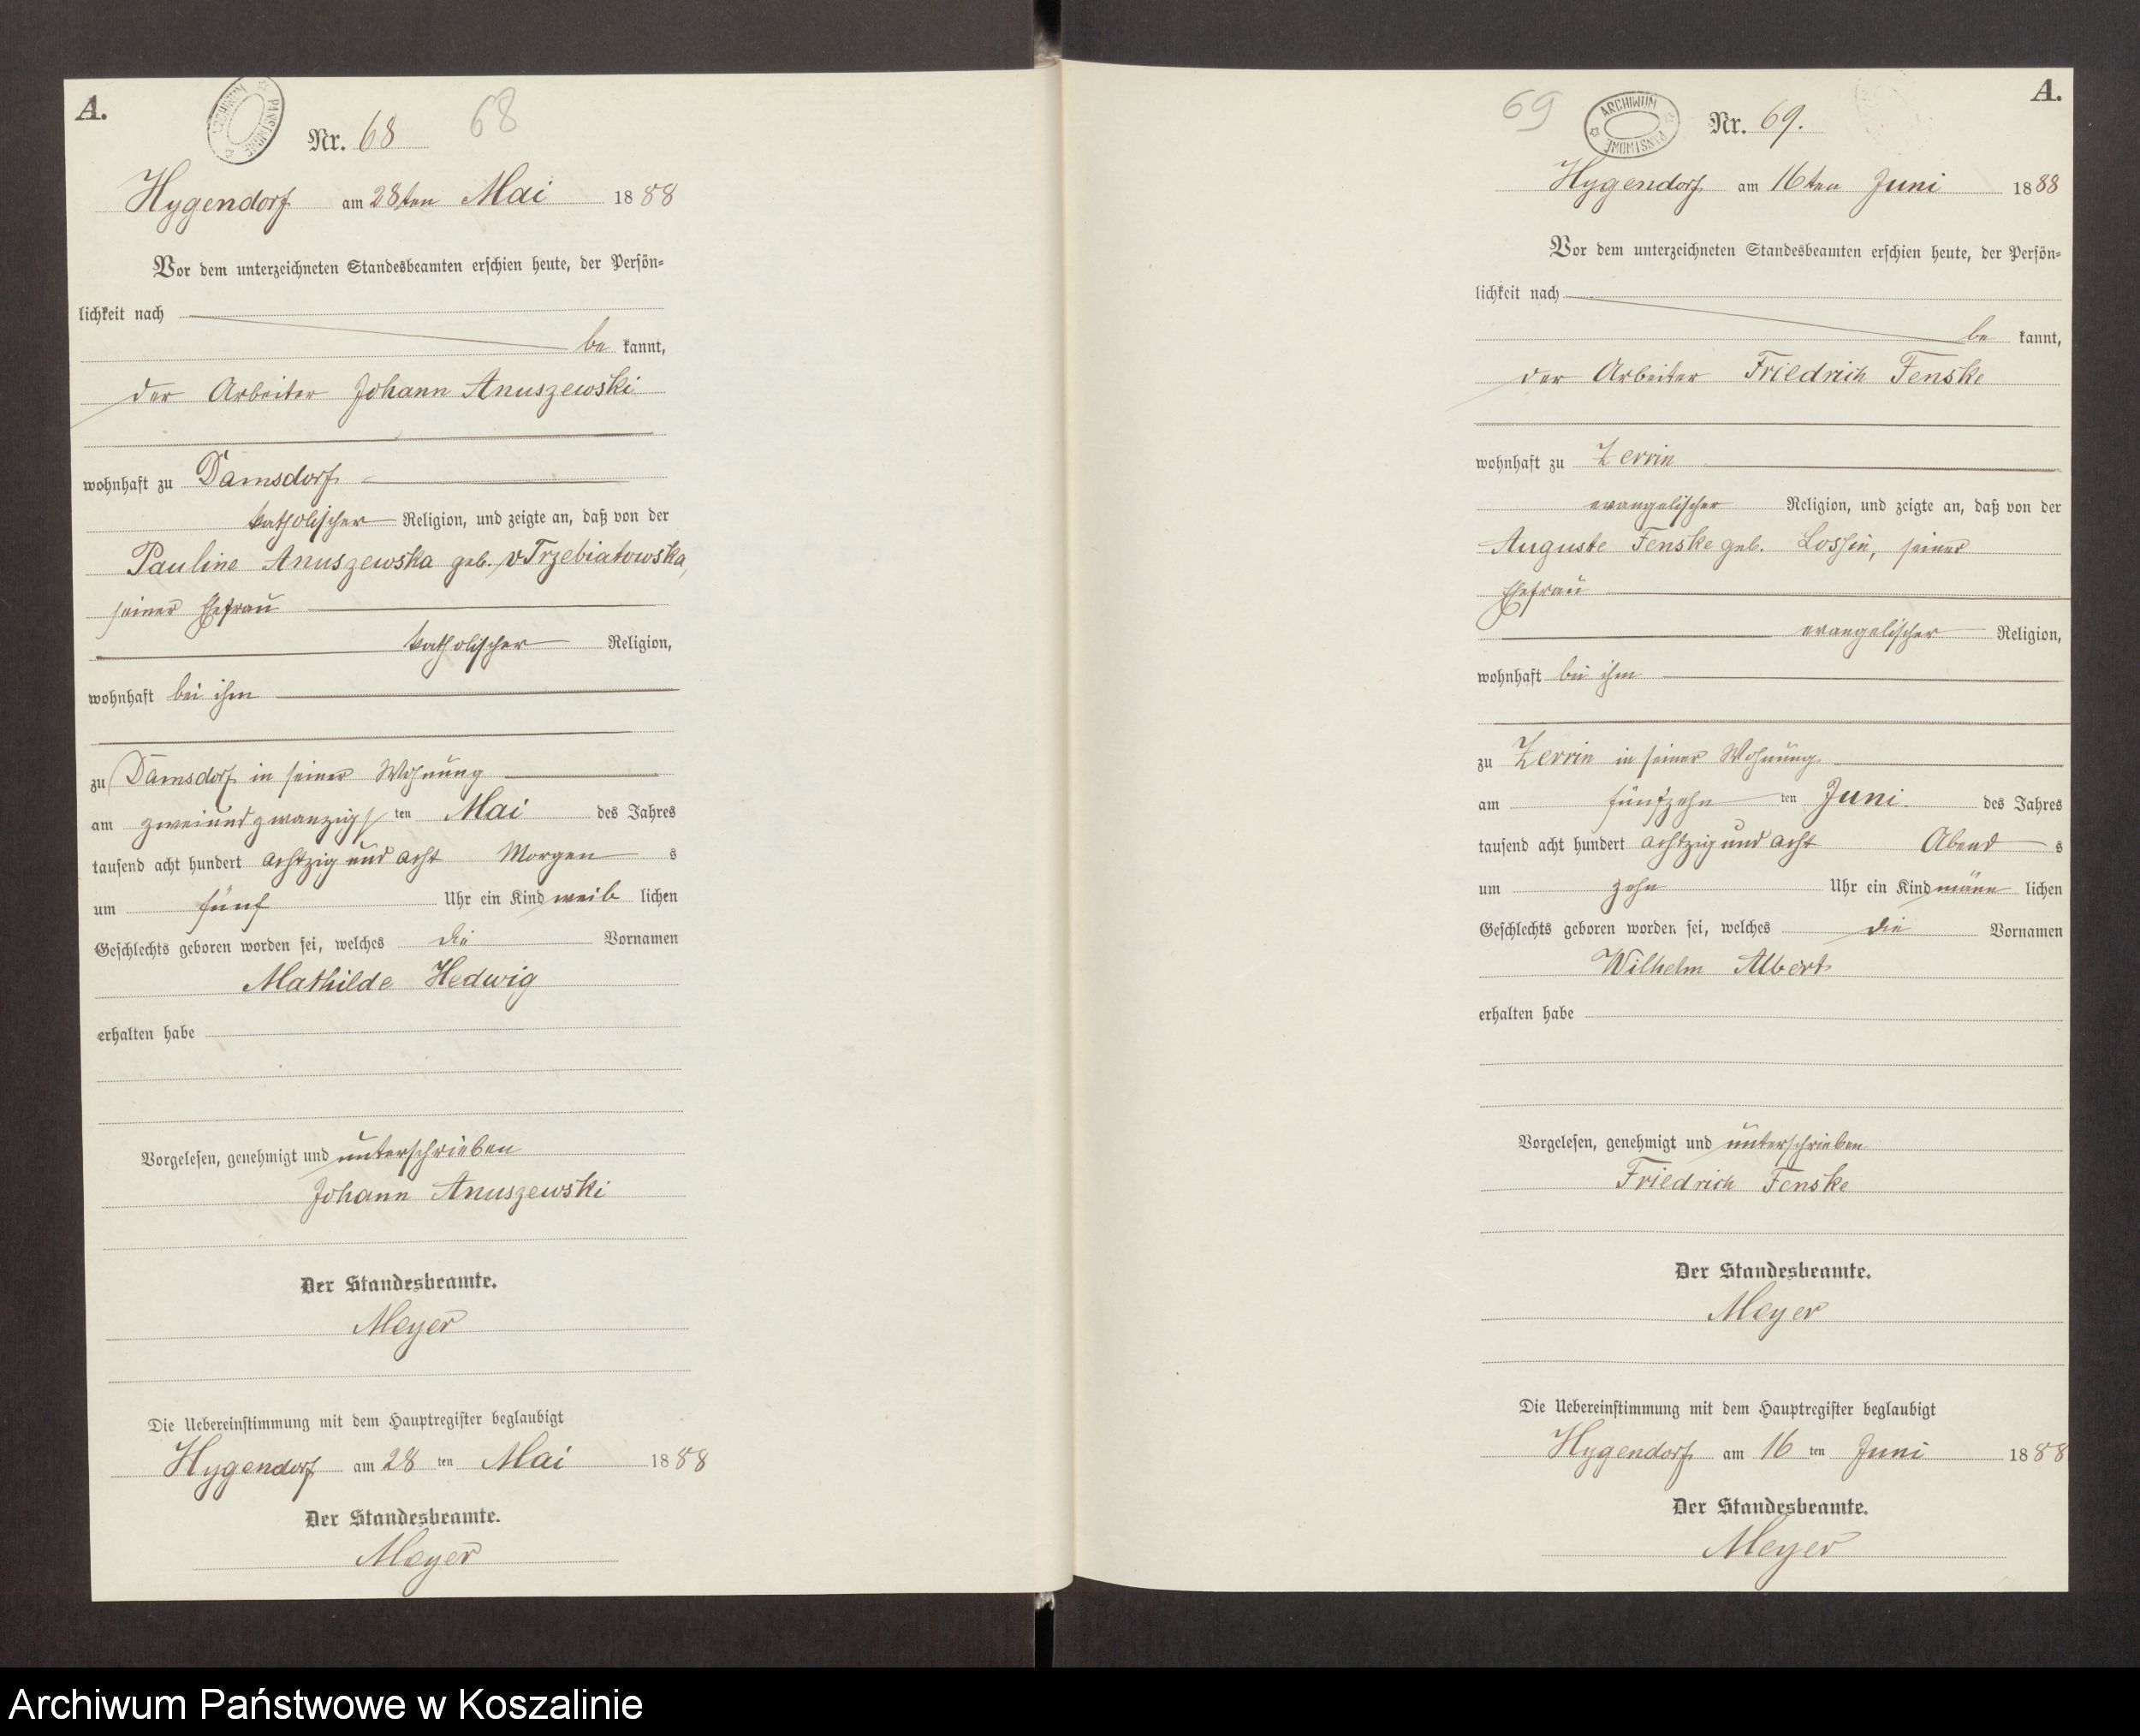 A.
ARCHIWUM PAŃSTWOWE
Nr. 68
68
Hygendorf am 28ten Mai 1888
Vor dem unterzeichneten Standesbeamten erschien heute, der Persön-
lichkeit nach
be kannt,
der Arbeiter Johann Anuszewski
wohnhaft zu Damsdorf
katholischer Religion, und zeigte an, daß von der
Pauline Anuszewska geb. v Trzebiatowska,
seiner Ehefrau
katholischer Religion,
wohnhaft bei ihm
zu Damsdorf in seiner Wohnung
am zweiundzwanzigs ten Mai des Jahres
tausend acht hundert achtzig und acht Morgen s
um fünf Uhr ein Kind weib lichen
Geschlechts geboren worden sei, welches die Vornamen
Mathilde Hedwig
erhalten habe
Vorgelesen, genehmigt und unterschrieben
Johann Anuszewski
Der Standesbeamte.
Meyer
Die Uebereinstimmung mit dem Hauptregister beglaubigt
Hygendorf am 28 ten Mai 1888
Der Standesbeamte.
Meyer
A.
69
ARCHIWUM PAŃSTWOWE
Nr. 69.
Hygendorf am 16ten Juni 1888
Vor dem unterzeichneten Standesbeamten erschien heute, der Persön-
lichkeit nach
be kannt,
der Arbeiter Friedrich Fenske
wohnhaft zu Zerrin
evangelischer Religion, und zeigte an, daß von der
Auguste Fenske geb. Lossin, seiner
Ehefrau
evangelischer Religion,
wohnhaft bei ihm
zu Zerrin in seiner Wohnung
am fünfzehn ten Juni des Jahres
tausend acht hundert achtzig und acht Abend s
um zehn Uhr ein Kind männ lichen
Geschlechts geboren worden sei, welches die Vornamen
Wilhelm Albert
erhalten habe
Vorgelesen, genehmigt und unterschrieben
Friedrich Fenske
Der Standesbeamte.
Meyer
Die Uebereinstimmung mit dem Hauptregister beglaubigt
Hygendorf am 16 ten Juni 1888
Der Standesbeamte.
Meyer
Archiwum Państwowe w Koszalinie